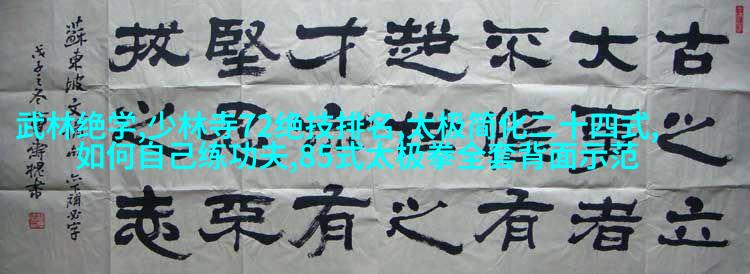 古之立
大者
不有
超之
才有
堅忍不
拔之志
蘇東坡文
戊子之冬
書
武林绝学,少林寺72绝技排名,太极简化二十四式,
如何自己练功夫,85式太极拳全套背面示范